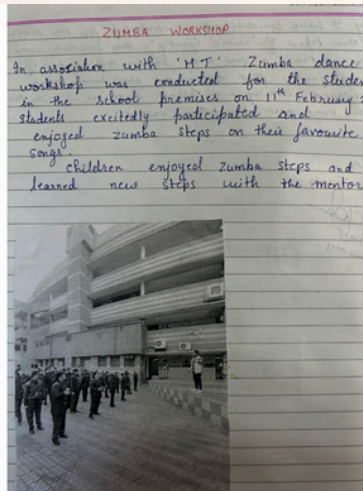 ZUMBA WORKSHOP
In association with 'HT' Zumba dance
workshop was conducted for the studen
in the school premises on 11th February
Students excitedly participated and
enjoyed zumba steps on their favourite
songs.
children enjoyed zumba steps and
learned new steps with the mentor